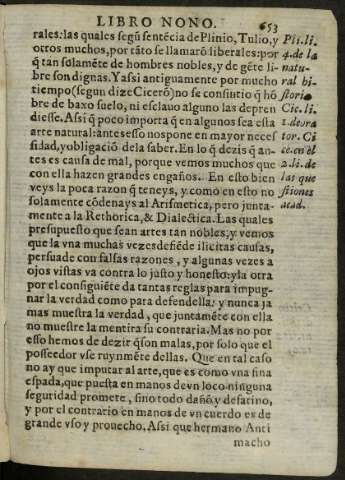 LIBRO NONO. 653
rales: las quales segũ sentẽcia de Plinio, Tulio, y
otros muchos, por tãto se llamarõ liberales: por
q̃ tan solamẽte de hombres nobles, y de gẽte li-
bre son dignas. Y assi antiguamente por mucho
tiempo (segun dize Ciceró) no se consintio q̃ hõ
bre de baxo suelo, ni esclauo alguno las depren
diesse. Assi q̃ poco importa q̃ en algunos sea esta
arte natural: ante esso nos pone en mayor neces
sidad, y obligació dela saber. En lo q̃ dezis q̃ an-
tes es causa de mal, porque vemos muchos que
con ella hazen grandes engaños. En esto bien
veys la poca razon q̃ teneys, y como en esto no
solamente cõdenays al Arismetica, pero junta-
mente a la Rethorica, & Dialectica. Las quales
presupuesto que sean artes tan nobles, y vemos
que la vna muchas vezes defiẽde ilicitas causas,
persuade con falsas razones, y algunas vezes a
ojos vistas va contra lo justo y honesto: y la otra
por el consiguiẽte da tantas reglas para impug-
nar la verdad como para defendella: y nunca ja
mas muestra la verdad, que juntamẽte con ella
no muestre la mentira su contraria. Mas no por
esso hemos de dezir q̃ son malas, por solo que el
posseedor vse ruynmẽte dellas. Que en tal caso
no ay que imputar al arte, que es como vna fina
espada, que puesta en manos de vn loco ninguna
seguridad promete, sino todo daño, y desatino,
y por el contrario en manos de vn cuerdo es de
grande vso y prouecho. Assi que hermano Anti
macho
Pli. li.
4. de la
natu-
ral hi-
storia
Cic. li.
1. de ora
tor. Ci
ce. en el
2. li. de
las que
stiones
acad.